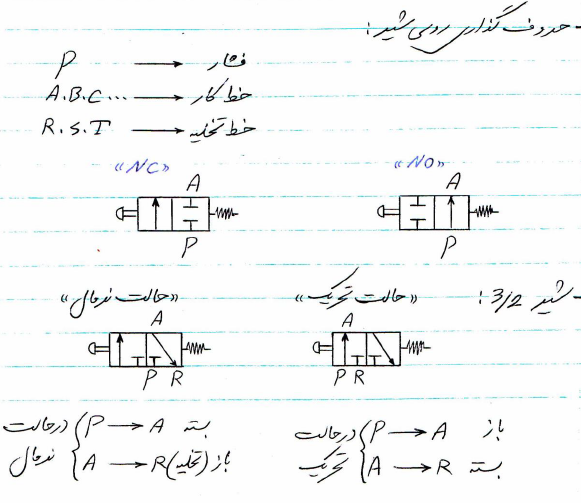 - حروف گذاری روی شیر:
P → فشار
A.B.C... → خط کار
R.S.T → خط تخلیه
«NC» «NO»
A A
P P
- شیر 3/2: «حالت تحریک» «حالت نرمال»
A A
P R P R
در حالت تحریک { P → A باز
A → R بسته
در حالت نرمال { P → A بسته
A → R باز (تخلیه)